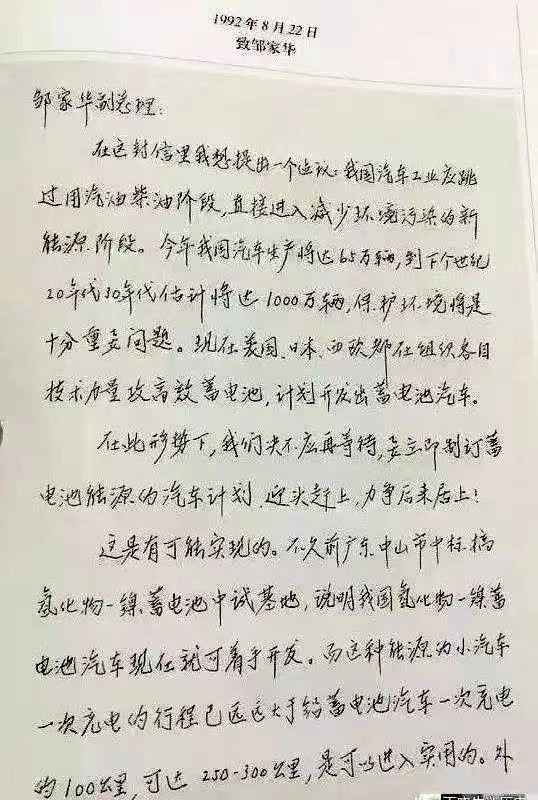 1992年8月22日
致邹家华
邹家华副总理：
在这封信里我想提出一个建议：我国汽车工业应跳
过用汽油柴油阶段，直接进入减少环境污染的新
能源阶段。今年我国汽车生产将达65万辆，到下个世纪
20年代30年代估计将达1000万辆，保护环境将是
十分重要问题。现在美国、日本、西欧都在组织各自
技术力量攻高效蓄电池，计划开发出蓄电池汽车。
在此形势下，我们决不应再等待，要立即制订蓄
电池能源的汽车计划，迎头赶上，力争后来居上！
这是有可能实现的。不久前广东中山市中标搞
氢化物－镍蓄电池中试基地，说明我国氢化物－镍蓄
电池汽车现在就可着手开发。而这种能源为小汽车
一次充电的行程已远远大于铅蓄电池汽车一次充电
的100公里，可达250-300公里，是可以进入实用的。外